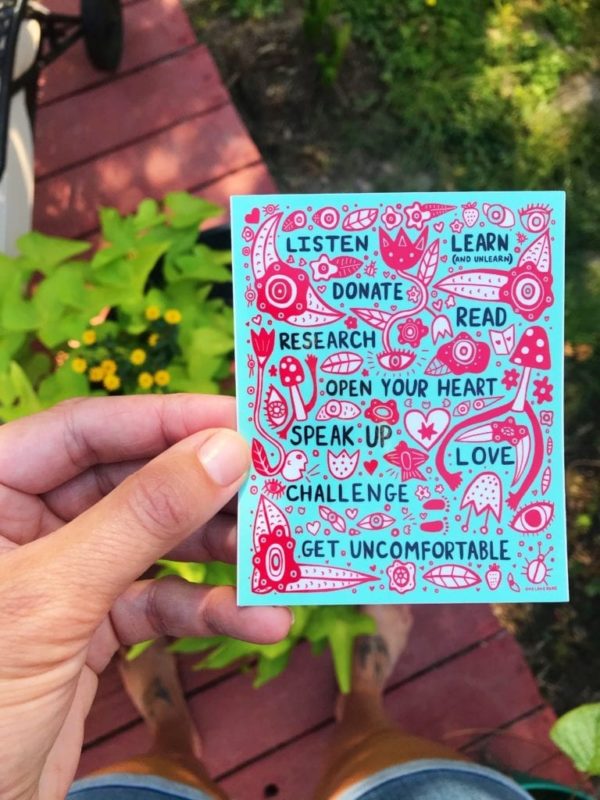 LISTEN
LEARN
(AND UNLEARN)
DONATE
READ
RESEARCH
OPEN YOUR HEART
SPEAK UP
LOVE
CHALLENGE
GET UNCOMFORTABLE